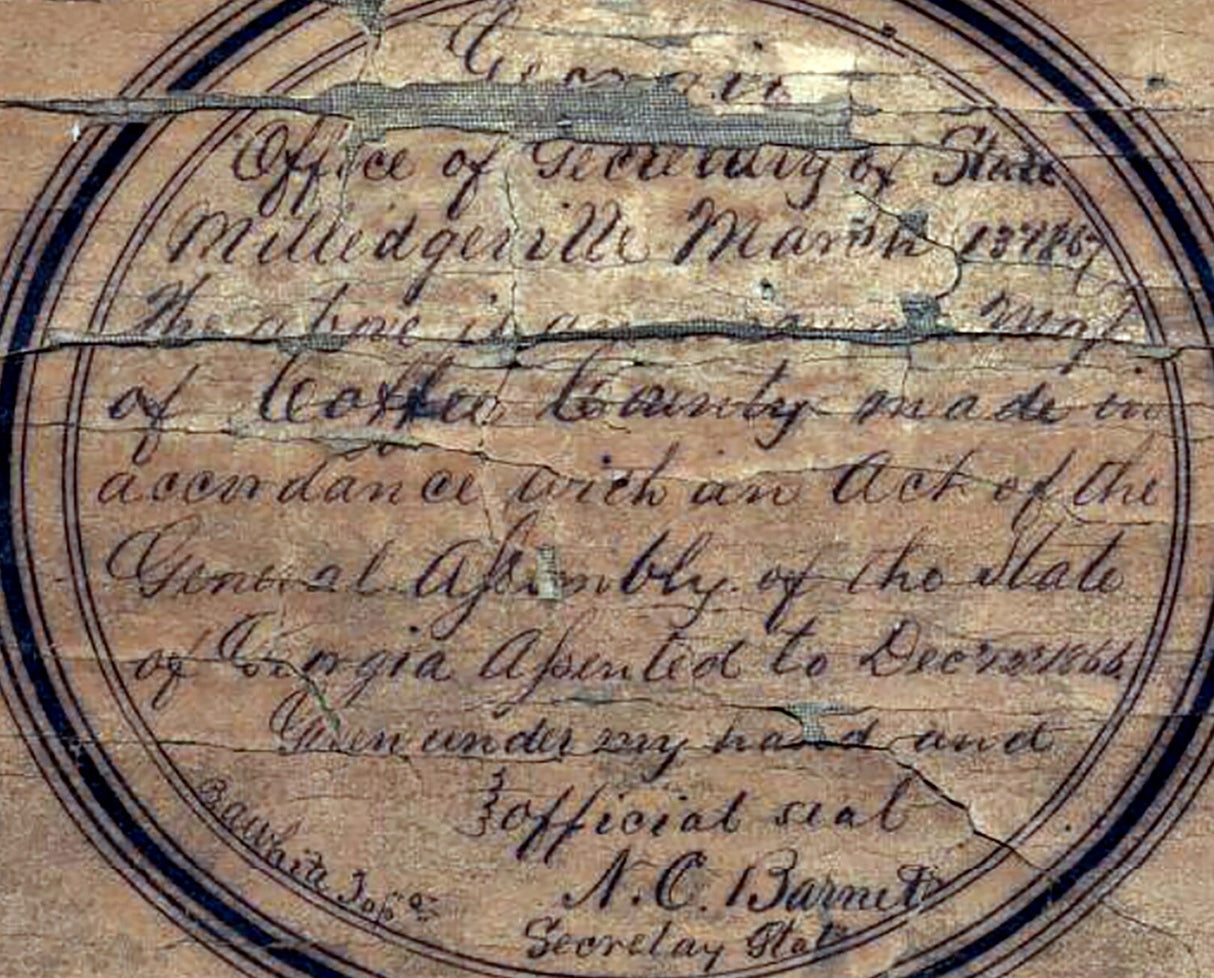 Georgia
Office of Secretary of State
Milledgeville March 13 1867
The above is a Map
of Coffee County made in
accordance with an Act of the
General Assembly of the State
of Georgia Assented to Decr 1866.
Given under my hand and
official seal
N. C. Barnett
Secretay State
B A White